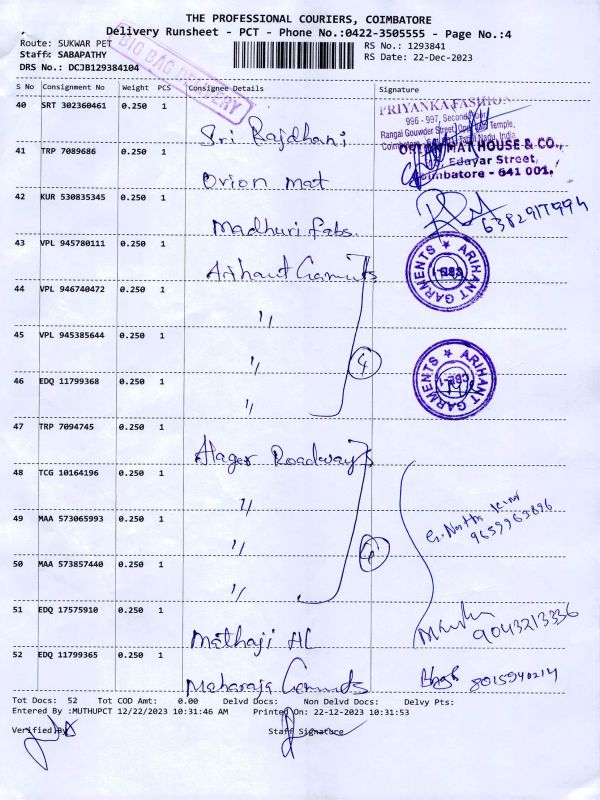 THE PROFESSIONAL COURIERS, COIMBATORE
Delivery Runsheet - PCT - Phone No.:0422-3505555 - Page No.:4
Route: SUKWAR PET
RS No.: 1293841
Staff: SABAPATHY
RS Date: 22-Dec-2023
DRS No.: DCJB129384104
BIG BAG DELIVERY
S No Consignment No Weight PCS Consignee Details Signature
40 SRT 302360461 0.250 1 Sri Rajdhani
PRIYANKA FASHION
996 - 997, Second Floor,
Rangai Gouwder Street, Temple,
Tamil Nadu, India
41 TRP 7089686 0.250 1 Orion mat
ORION MAT HOUSE & CO.,
Edayar Street,
Coimbatore - 641 001.
42 KUR 530835345 0.250 1 Madhuri fabs.
43 VPL 945780111 0.250 1 Arihant Garments
ARIHANT GARMENTS
44 VPL 946740472 0.250 1 "
45 VPL 945385644 0.250 1 "
4
46 EDQ 11799368 0.250 1 "
ARIHANT GARMENTS
47 TRP 7094745 0.250 1 Hager Roadways
48 TCG 10164196 0.250 1 "
49 MAA 573065993 0.250 1 "
9659963896
4
50 MAA 573857440 0.250 1 "
51 EDQ 17575910 0.250 1 Mathaji HL
9043213336
52 EDQ 11799365 0.250 1 Maharaja Garments
8015940214
Tot Docs: 52 Tot COD Amt: 0.00 Delvd Docs: Non Delvd Docs: Delvy Pts:
Entered By :MUTHUPCT 12/22/2023 10:31:46 AM Printed On: 22-12-2023 10:31:53
Verified By Staff Signature